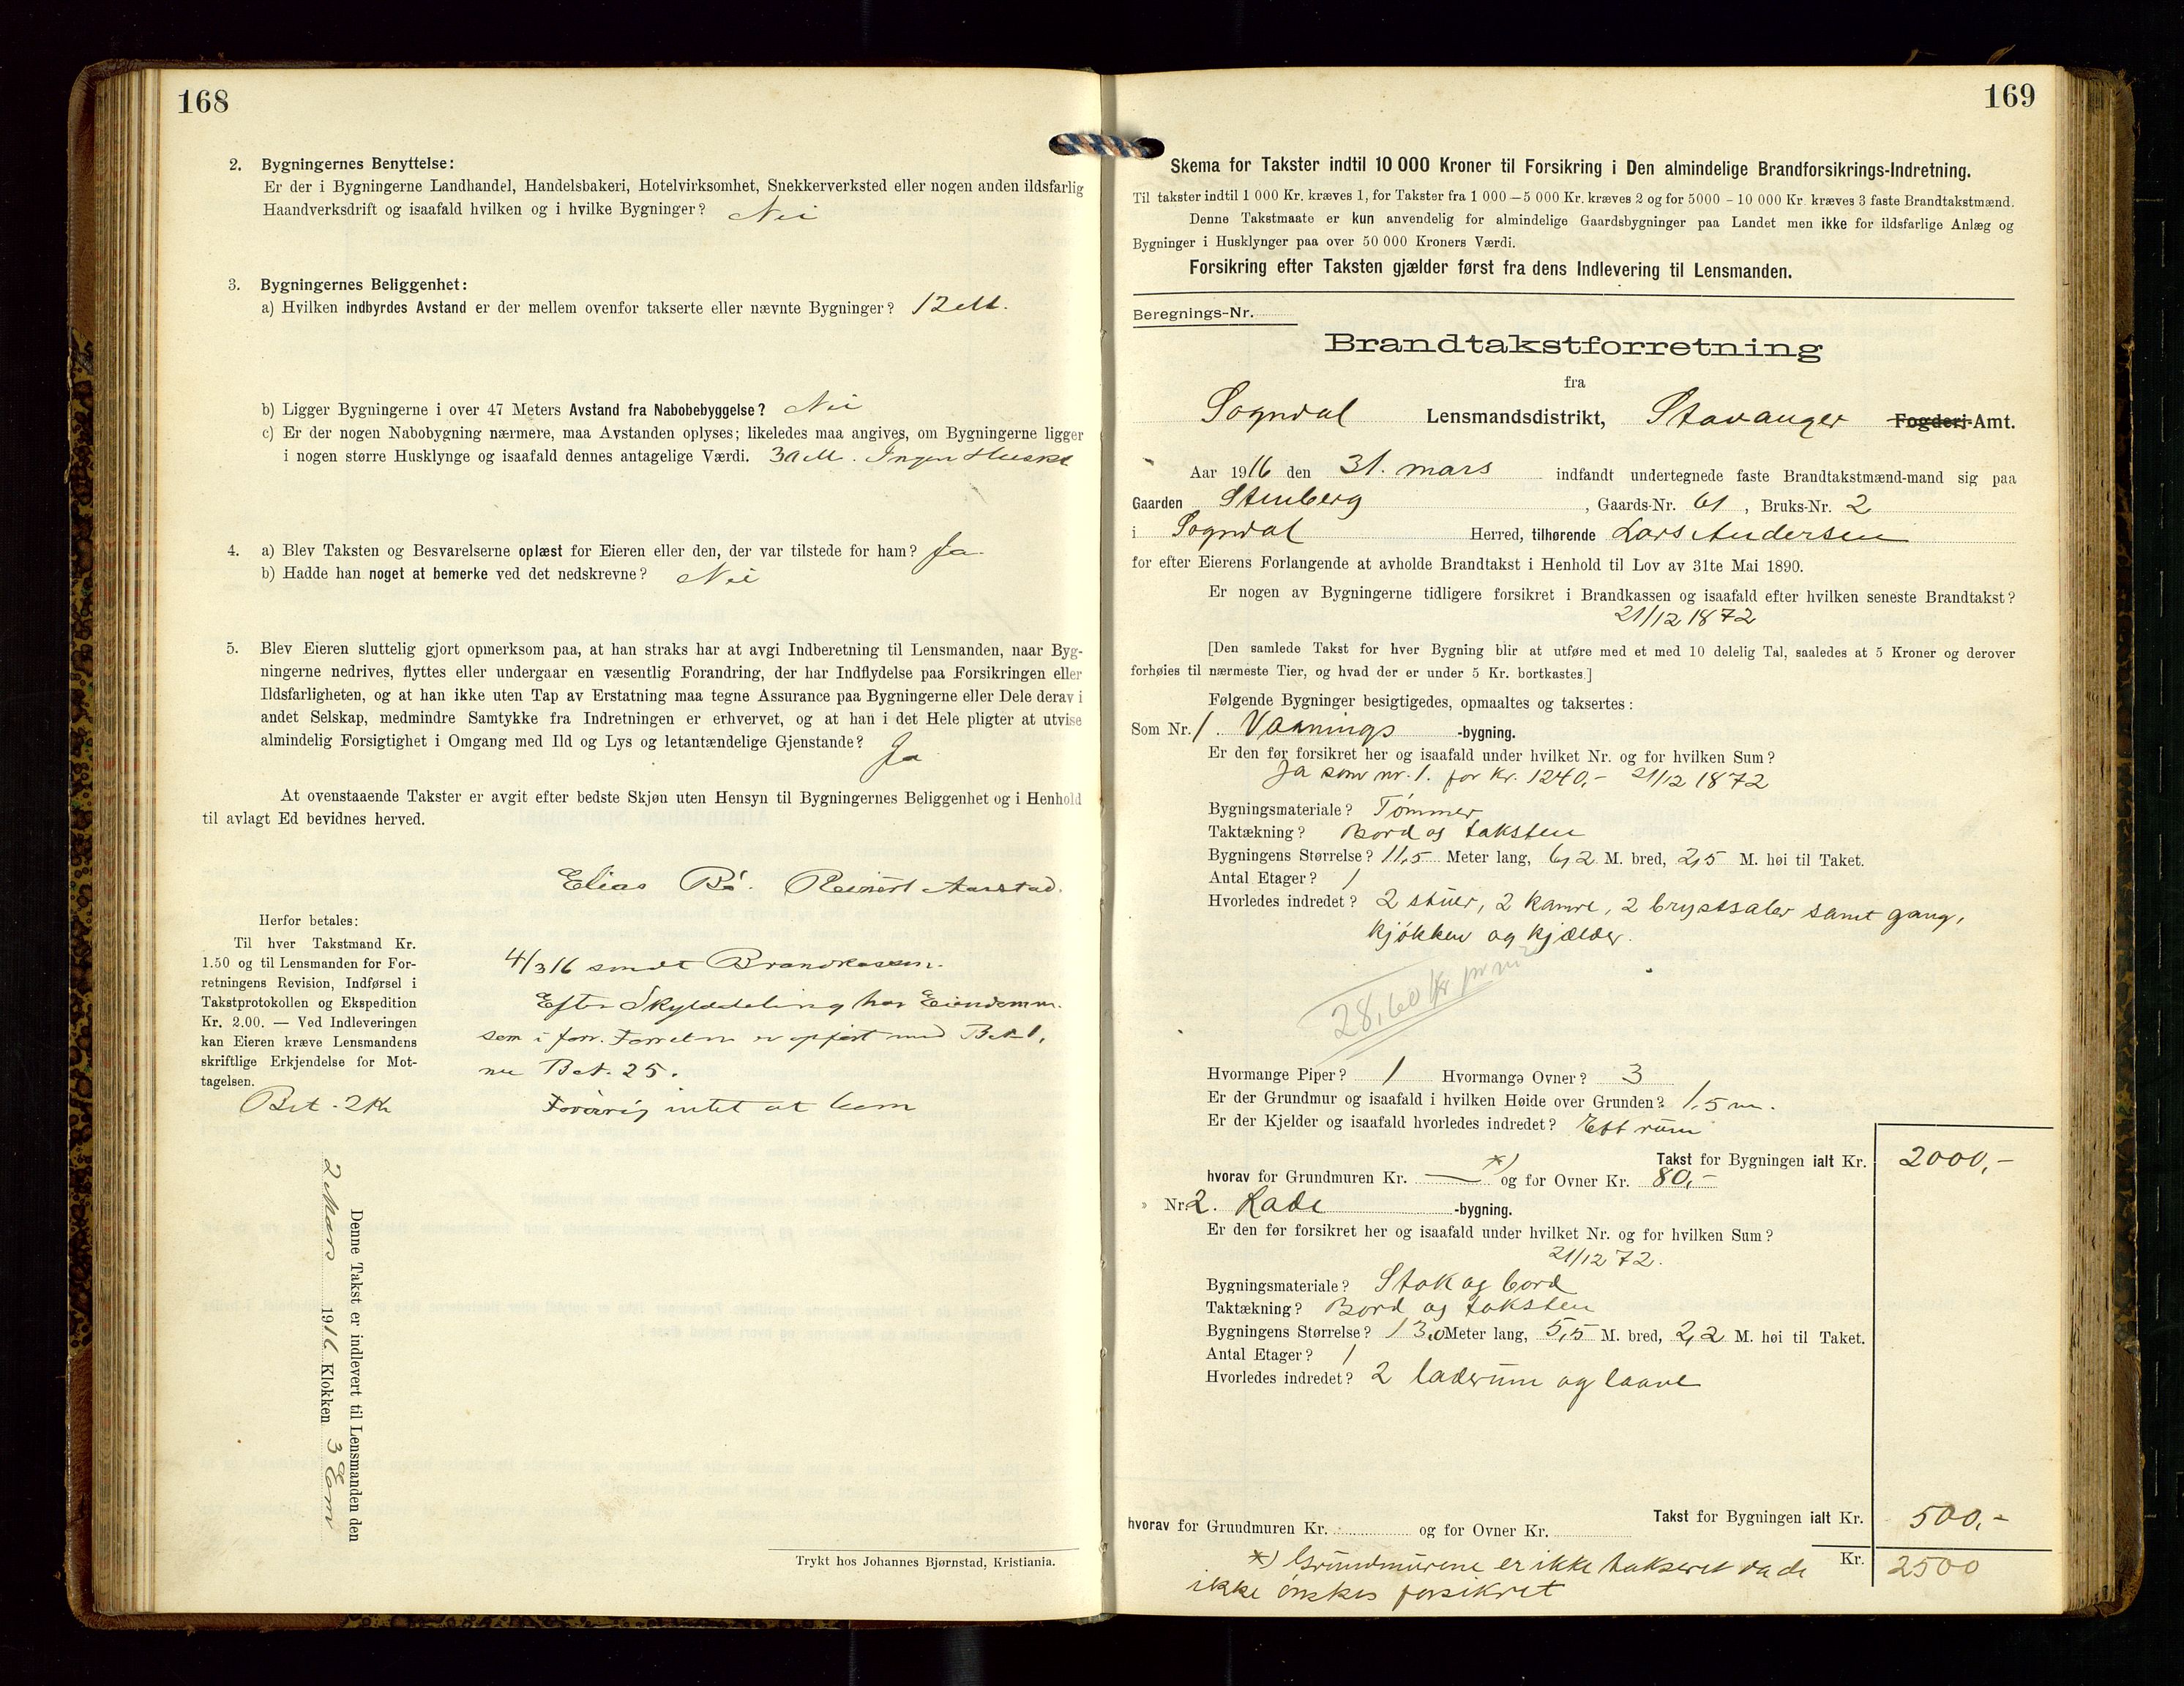 168
2. Bygningernes Benyttelse:
Er der i Bygningerne Landhandel, Handelsbakeri, Hotelvirksomhet, Snekkerverksted eller nogen anden ildsfarlig
Haandverksdrift og isaafald hvilken og i hvilke Bygninger? Nei
3. Bygningernes Beliggenhet:
a) Hvilken indbyrdes Avstand er der mellem ovenfor takserte eller nævnte Bygninger? 12 M.
b) Ligger Bygningerne i over 47 Meters Avstand fra Nabobebyggelse? Nei
c) Er der nogen Nabobygning nærmere, maa Avstanden oplyses; likeledes maa angives, om Bygningerne ligger
i nogen større Husklynge og isaafald dennes antagelige Værdi. M. Ingen
4. a) Blev Taksten og Besvarelserne oplæst for Eieren eller den, der var tilstede for ham? Ja.
b) Hadde han noget at bemerke ved det nedskrevne? Nei
5. Blev Eieren sluttelig gjort opmerksom paa, at han straks har at avgi Indberetning til Lensmanden, naar Byg-
ningerne nedrives, flyttes eller undergaar en væsentlig Forandring, der har Indflydelse paa Forsikringen eller
Ildsfarligheten, og at han ikke uten Tap av Erstatning maa tegne Assurance paa Bygningerne eller Dele derav i
andet Selskap, medmindre Samtykke fra Indretningen er erhvervet, og at han i det Hele pligter at utvise
almindelig Forsigtighet i Omgang med Ild og Lys og letantændelige Gjenstande? Ja
At ovenstaaende Takster er avgit efter bedste Skjøn uten Hensyn til Bygningernes Beliggenhet og i Henhold
til avlagt Ed bevidnes herved.
Elias Bö. Reinert Aarstad.
Herfor betales:
Til hver Takstmand Kr.
1.50 og til Lensmanden for For-
retningens Revision, Indførsel i
Takstprotokollen og Ekspedition
Kr. 2.00. — Ved Indleveringen
kan Eieren kræve Lensmandens
skriftlige Erkjendelse for Mot-
tagelsen.
Bet. 2 Kr
4/3 16 sendt Brandkassen.
Efter Skylddeling har Eiendommen
som i forr. Forretn er opført med Br.nr 1,
nu 25.
Forøvrig intet at bem
Denne Takst er indlevert til Lensmanden den
2 Mars 1916 Klokken 3 Em
Trykt hos Johannes Bjørnstad, Kristiania.
169
Skema for Takster indtil 10 000 Kroner til Forsikring i Den almindelige Brandforsikrings-Indretning.
Til takster indtil 1 000 Kr. kræves 1, for Takster fra 1 000 — 5 000 Kr. kræves 2 og for 5000 - 10 000 Kr. kræves 3 faste Brandtakstmænd.
Denne Takstmaate er kun anvendelig for almindelige Gaardsbygninger paa Landet men ikke for ildsfarlige Anlæg og
Bygninger i Husklynger paa over 50 000 Kroners Værdi.
Forsikring efter Taksten gjælder først fra dens Indlevering til Lensmanden.
Beregnings-Nr.
Brandtakstforretning
fra
Sogndal Lensmandsdistrikt, Stavanger Fogderi-Amt.
Aar 1916 den 31. mars indfandt undertegnede faste Brandtakstmænd-mand sig paa
Gaarden Stenberg, Gaards-Nr. 61, Bruks-Nr. 2
i Sogndal Herred, tilhørende Lars Andersen
for efter Eierens Forlangende at avholde Brandtakst i Henhold til Lov av 31te Mai 1890.
Er nogen av Bygningerne tidligere forsikret i Brandkassen og isaafald efter hvilken seneste Brandtakst?
21/12 1872
[Den samlede Takst for hver Bygning blir at utføre med et med 10 delelig Tal, saaledes at 5 Kroner og derover
forhøies til nærmeste Tier, og hvad der er under 5 Kr. bortkastes.]
Følgende Bygninger besigtigedes, opmaaltes og taksertes:
Som Nr. 1. Vaanings -bygning.
Er den før forsikret her og isaafald under hvilket Nr. og for hvilken Sum?
Ja som nr. 1. for kr. 1240,- 21/12 1872
Bygningsmateriale? Tömmer
Taktækning? Bord og taksten
Bygningens Størrelse? 11,5 Meter lang, 6,2 M. bred, 2,5 M. høi til Taket.
Antal Etager? 1
Hvorledes indredet? 2 stuer, 2 kamre, 2 brystsaler samt gang,
kjökken og kjælder.
28,60 kr pr m²
Hvormange Piper? 1 Hvormange Ovner? 3
Er der Grundmur og isaafald i hvilken Høide over Grunden? 1,5 m.
Er der Kjelder og isaafald hvorledes indredet? Ett rum
Takst for Bygningen ialt Kr. 2000,-
hvorav for Grundmuren Kr. — *) og for Ovner Kr. 80,-
Nr. 2. Lade -bygning.
Er den før forsikret her og isaafald under hvilket Nr. og for hvilken Sum?
21/12 72.
Bygningsmateriale? Stok og bord
Taktækning? Bord og taksten
Bygningens Størrelse? 13,0 Meter lang, 5,5 M. bred, 2,2 M. høi til Taket.
Antal Etager? 1
Hvorledes indredet? 2 laderum og laave
Takst for Bygningen ialt Kr. 500,-
hvorav for Grundmuren Kr. og for Ovner Kr.
Kr. 2500
*) Grundmurene er ikke takseret da de
ikke önskes forsikret